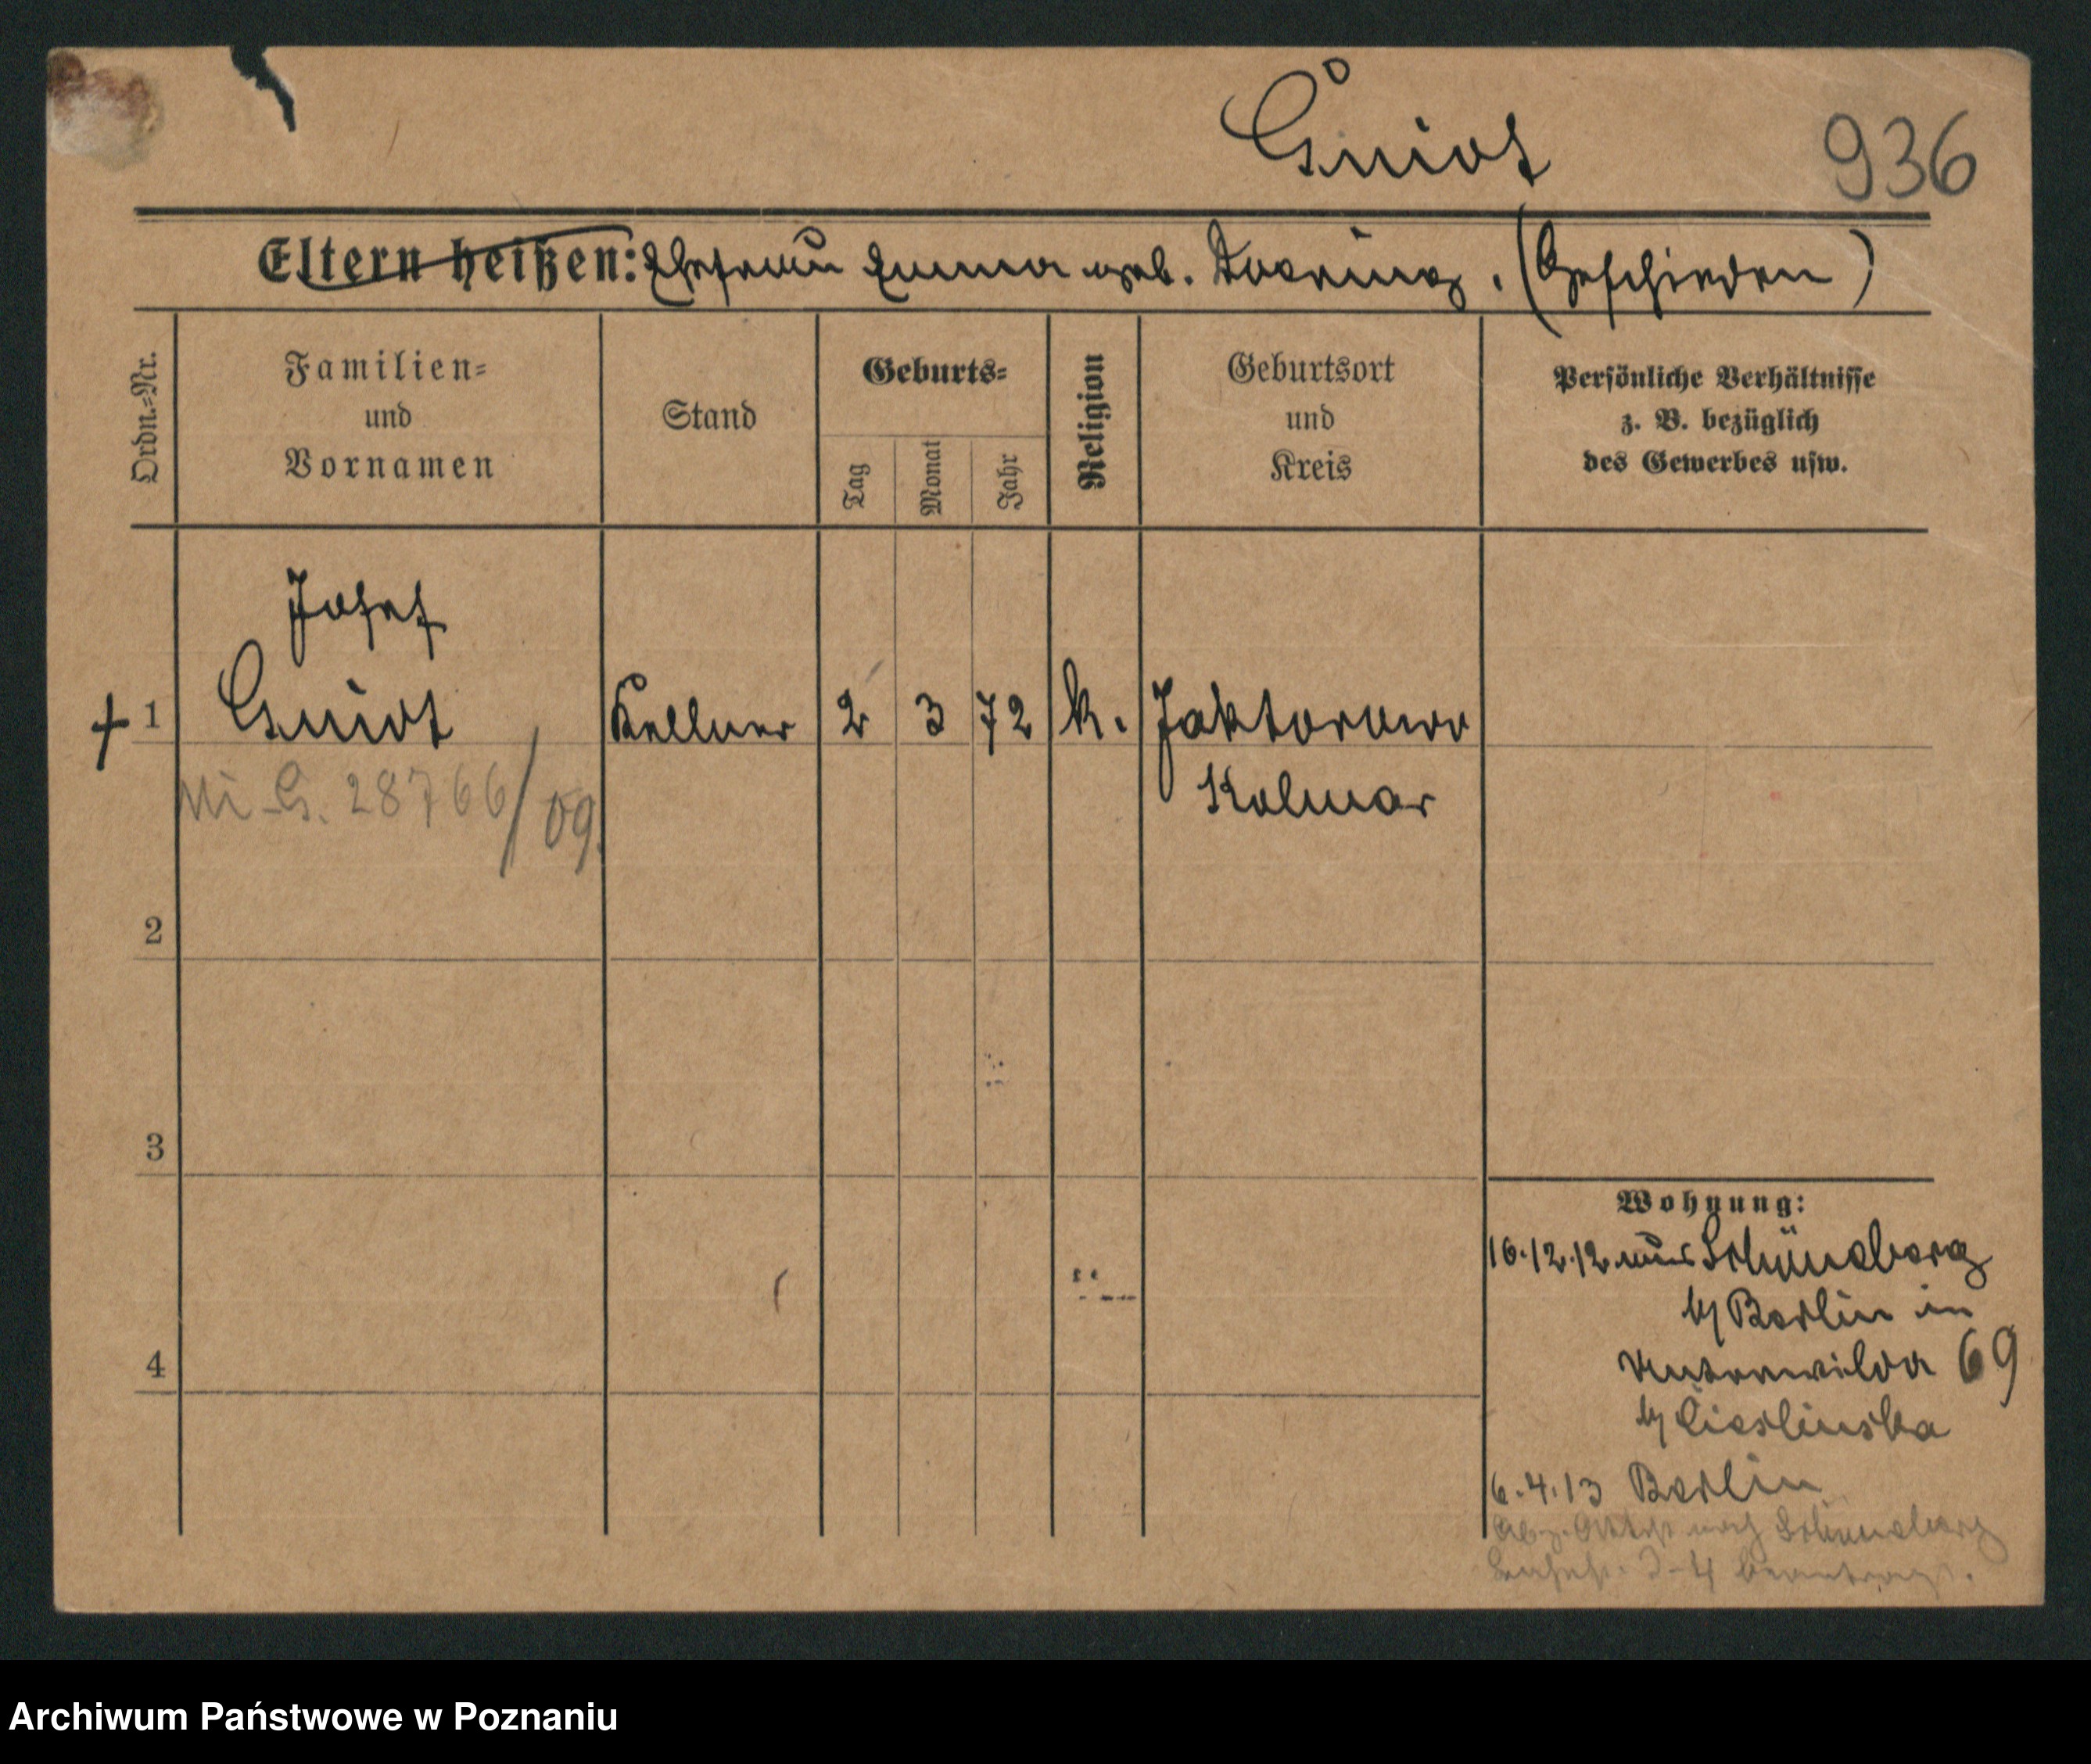 Gniot
936
Eltern heißen: Ehefrau Emma geb. Doering. (Geschieden)
Ordn.=Nr.
Familien=
und
Vornamen
Stand
Geburts=
Tag
Monat
Jahr
Religion
Geburtsort
und
Kreis
Persönliche Verhältnisse
z. B. bezüglich
des Gewerbes usw.
Josef
+ 1 Gniot Kellner 2 3 72 k. Jaktorowo
Kolmar
28766/09.
2
3
4
Wohnung:
16.12.12 aus Schöneberg
b/ Berlin in
69
b/ Cieslinska
6.4.13 Berlin
nach Schöneberg
3-4
Archiwum Państwowe w Poznaniu